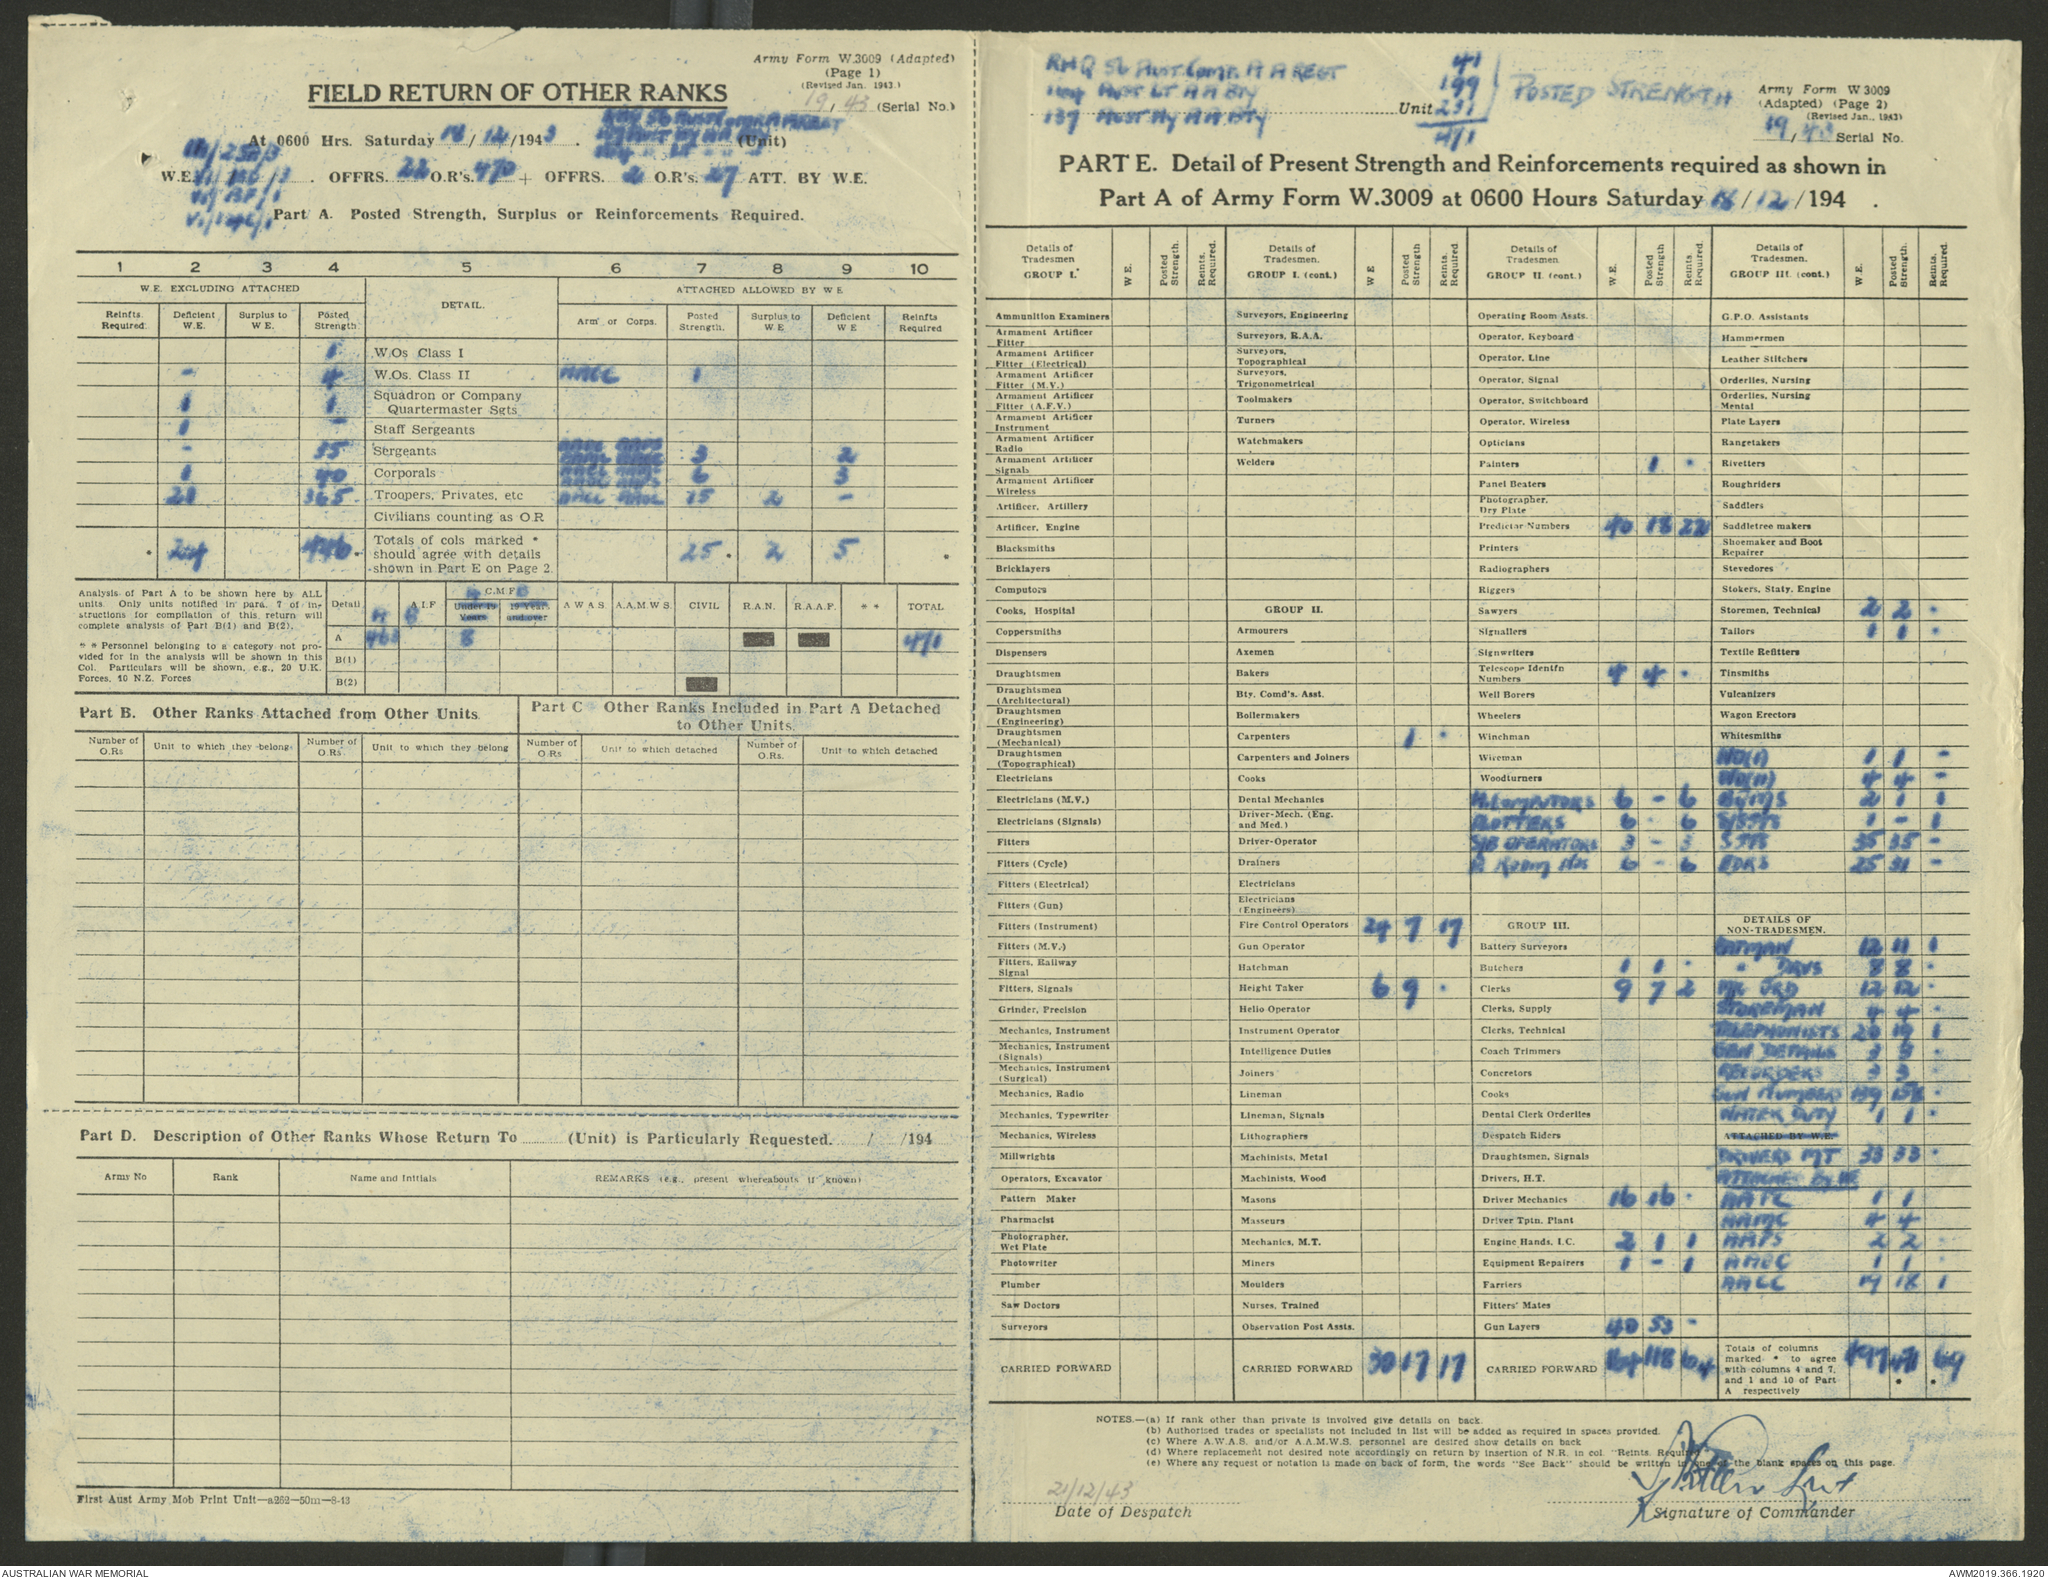 Army Form W.3009 (Adapted)
(Page 1)
(Revised Jan. 1943.)
FIELD RETURN OF OTHER RANKS
19 / 43 (Serial No.)
At 0600 Hrs. Saturday 18 / 12 / 1943 . (Unit)
W.E. . OFFRS. 22 O.R's. 470 + OFFRS. 2 O.R's. 27 ATT. BY W.E.
Part A. Posted Strength, Surplus or Reinforcements Required.
1 2 3 4 5 6 7 8 9 10
W.E. EXCLUDING ATTACHED DETAIL. ATTACHED ALLOWED BY W E
Reinfts. Required. Deficient W.E. Surplus to W.E. Posted Strength. Arm or Corps. Posted Strength. Surplus to W E Deficient W E Reinfts Required
1 W.Os Class I
- 4 W.Os. Class II AACC 1
1 1 Squadron or Company Quartermaster Sgts.
1 - Staff Sergeants
- 35 Sergeants 3 2
1 40 Corporals 6 3
21 365 Troopers, Privates, etc 15 2 -
Civilians counting as O.R
* 24 446 * Totals of cols marked * should agree with details shown in Part E on Page 2. 25 * 2 5 *
Analysis of Part A to be shown here by ALL units. Only units notified in para. 7 of instructions for compilation of this return will complete analysis of Part B(1) and B(2).
* * Personnel belonging to a category not provided for in the analysis will be shown in this Col. Particulars will be shown, e.g., 20 U.K. Forces, 10 N.Z. Forces
Detail A.I.F C.M.F Under 19 Years 19 Year and over A W A S. A.A.M.W.S. CIVIL R.A.N. R.A.A.F. * * TOTAL
A B A B
A 463 8 471
B(1)
B(2)
Part B. Other Ranks Attached from Other Units.
Part C Other Ranks Included in Part A Detached to Other Units.
Number of O.Rs Unit to which they belong Number of O.Rs. Unit to which they belong Number of O.Rs Unit to which detached Number of O.Rs. Unit to which detached
Part D. Description of Other Ranks Whose Return To ........ (Unit) is Particularly Requested. / /194
Army No Rank Name and Initials REMARKS (e.g., present whereabouts if known)
First Aust Army Mob Print Unit—a262—50m—8-43
RHQ 56 Aust Comp. A A REGT 41
AUST LT A A BTY 199
137 AUST Hy A A BTY Unit 231
471
POSTED STRENGTH
Army Form W 3009
(Adapted) (Page 2)
(Revised Jan., 1943)
19 / 43 Serial No.
PART E. Detail of Present Strength and Reinforcements required as shown in
Part A of Army Form W.3009 at 0600 Hours Saturday 18 / 12 / 194 .
Details of Tradesmen GROUP I. W.E. Posted Strength. Reints. Required.
Ammunition Examiners
Armament Artificer Fitter
Armament Artificer Fitter (Electrical)
Armament Artificer Fitter (M.V.)
Armament Artificer Fitter (A.F.V.)
Armament Artificer Instrument
Armament Artificer Radio
Armament Artificer Signals
Armament Artificer Wireless
Artificer, Artillery
Artificer, Engine
Blacksmiths
Bricklayers
Computors
Cooks, Hospital
Coppersmiths
Dispensers
Draughtsmen
Draughtsmen (Architectural)
Draughtsmen (Engineering)
Draughtsmen (Mechanical)
Draughtsmen (Topographical)
Electricians
Electricians (M.V.)
Electricians (Signals)
Fitters
Fitters (Cycle)
Fitters (Electrical)
Fitters (Gun)
Fitters (Instrument)
Fitters (M.V.)
Fitters, Railway Signal
Fitters, Signals
Grinder, Precision
Mechanics, Instrument
Mechanics, Instrument (Signals)
Mechanics, Instrument (Surgical)
Mechanics, Radio
Mechanics, Typewriter
Mechanics, Wireless
Millwrights
Operators, Excavator
Pattern Maker
Pharmacist
Photographer, Wet Plate
Photowriter
Plumber
Saw Doctors
Surveyors
CARRIED FORWARD
Details of Tradesmen. GROUP I. (cont.) W E Posted Strength Reints. Required.
Surveyors, Engineering
Surveyors, R.A.A.
Surveyors, Topographical
Surveyors, Trigonometrical
Toolmakers
Turners
Watchmakers
Welders
GROUP II.
Armourers
Axemen
Bakers
Bty. Comd's. Asst.
Boilermakers
Carpenters 1 -
Carpenters and Joiners
Cooks
Dental Mechanics
Driver-Mech. (Eng. and Med.)
Driver-Operator
Drainers
Electricians
Electricians (Engineers)
Fire Control Operators 24 7 17
Gun Operator
Hatchman
Height Taker 6 9 -
Helio Operator
Instrument Operator
Intelligence Duties
Joiners
Lineman
Lineman, Signals
Lithographers
Machinists, Metal
Machinists, Wood
Masons
Masseurs
Mechanics, M.T.
Miners
Moulders
Nurses, Trained
Observation Post Assts.
CARRIED FORWARD 30 17 17
Details of Tradesmen GROUP II. (cont.) W.E. Posted Strength Reints. Required.
Operating Room Assts.
Operator, Keyboard
Operator, Line
Operator, Signal
Operator, Switchboard
Operator, Wireless
Opticians
Painters 1 -
Panel Beaters
Photographer, Dry Plate
Predictar Numbers 40 18 22
Printers
Radiographers
Riggers
Sawyers
Signallers
Signwriters
Telescope Identfn Numbers 4 4 -
Well Borers
Wheelers
Winchman
Wireman
Woodturners
H. COMPUTORS 6 - 6
PLOTTERS 6 - 6
S/B OPERATORS 3 - 3
P. ROOM NOS 6 - 6
GROUP III.
Battery Surveyors
Butchers 1 1 -
Clerks 9 7 2
Clerks, Supply
Clerks, Technical
Coach Trimmers
Concretors
Cooks
Dental Clerk Orderlies
Despatch Riders
Draughtsmen, Signals
Drivers, H.T.
Driver Mechanics 16 16 -
Driver Tptn. Plant
Engine Hands, I.C. 2 1 1
Equipment Repairers 1 - 1
Farriers
Fitters' Mates
Gun Layers 40 53 -
CARRIED FORWARD 164 118 64
Details of Tradesmen. GROUP III. (cont.) W.E. Posted Strength. Reints. Required.
G.P.O. Assistants
Hammermen
Leather Stitchers
Orderlies, Nursing
Orderlies, Nursing Mental
Plate Layers
Rangetakers
Rivetters
Roughriders
Saddlers
Saddletree makers
Shoemaker and Boot Repairer
Stevedores
Stokers, Staty. Engine
Storemen, Technical 2 2 -
Tailors 1 1 -
Textile Refitters
Tinsmiths
Vulcanizers
Wagon Erectors
Whitesmiths
WO(I) 1 1 -
WO(II) 4 4 -
BQMS 2 1 1
S/SGTS 1 - 1
SGTS 35 35 -
BDRS 25 31 -
DETAILS OF NON-TRADESMEN.
BATMAN 12 11 1
" DRVS 8 8 -
MR ORD 12 12 -
STOREMAN 4 4 -
TELEPHONISTS 20 19 1
GEN DETAILS 3
RECORDERS 3 3 -
GUN NUMBERS 159
WATER DUTY 1 1 -
ATTACHED BY W.E.
DRIVERS MT 33 33 -
ATTACHED BY WE
1 1
AAMC 4 4
AAPS 2 2
AAOC 1 1
AACC 19 18 1
Totals of columns marked * to agree with columns 4 and 7, and 1 and 10 of Part A respectively 497 471 * 69 *
NOTES.—(a) If rank other than private is involved give details on back.
(b) Authorised trades or specialists not included in list will be added as required in spaces provided.
(c) Where A.W.A.S. and/or A.A.M.W.S. personnel are desired show details on back
(d) Where replacement not desired note accordingly on return by insertion of N.R. in col. "Reints. Required"
(e) Where any request or notation is made on back of form, the words "See Back" should be written in one of the blank spaces on this page.
21/12/43
Date of Despatch
Signature of Commander
AUSTRALIAN WAR MEMORIAL
AWM2019.366.1920